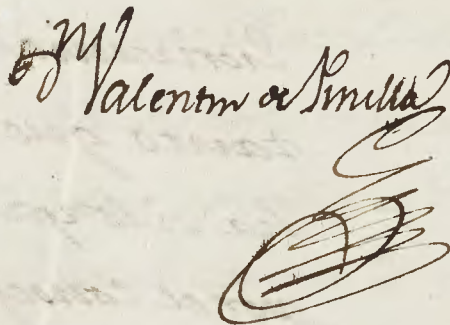 Valentin de Pinilla